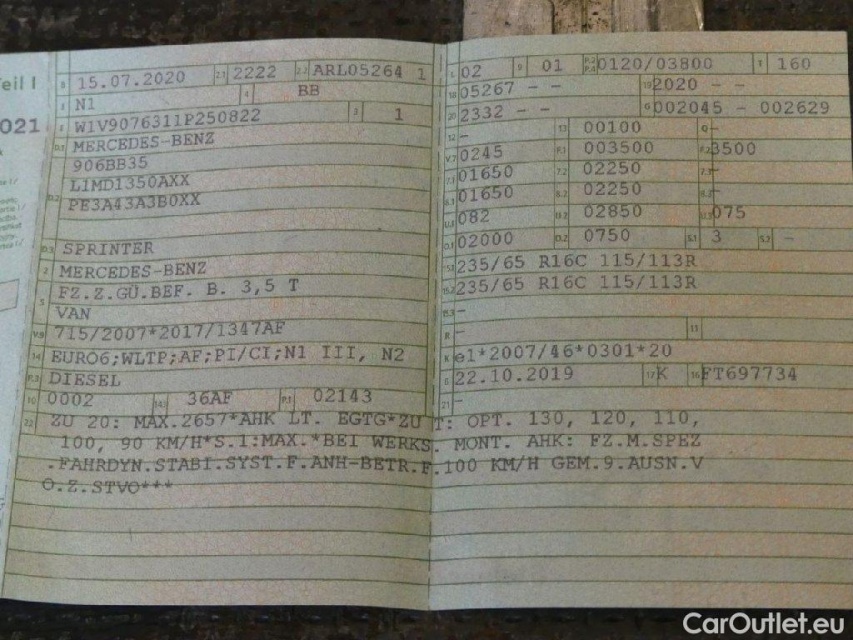 Teil I
021
B 15.07.2020 2.1 2222 2.2 ARL05264 1
J N1 4 BB
E W1V9076311P250822 3 1
D.1 MERCEDES-BENZ
906BB35
LIMD1350AXX
D.2 PE3A43A3B0XX
D.3 SPRINTER
2 MERCEDES-BENZ
FZ.Z.GÜ.BEF. B. 3,5 T
5 VAN
V.9 715/2007*2017/1347AF
14 EURO6;WLTP;AF;PI/CI;N1 III, N2
P.3 DIESEL
10 0002 14.1 36AF P.1 02143
L 02 9 01 P.2 P.4 0120/03800 T 160
18 05267 - - 19 2020 - -
20 2332 - - G 002045 - 002629
12 - 13 00100 Q -
V.7 0245 F.1 003500 F.2 3500
7.1 01650 7.2 02250 7.3 -
8.1 01650 8.2 02250 8.3 -
U.1 082 U.2 02850 U.3 075
O.1 02000 O.2 0750 S.1 3 S.2 -
15.1 235/65 R16C 115/113R
15.2 235/65 R16C 115/113R
15.3 -
R - 11
K e1*2007/46*0301*20
6 22.10.2019 17 K 16 FT697734
21 -
22 ZU 20: MAX.2657*AHK LT. EGTG*ZU T: OPT. 130, 120, 110,
100, 90 KM/H*S.1:MAX.*BEI WERKS. MONT. AHK: FZ.M.SPEZ
.FAHRDYN.STABI.SYST.F.ANH-BETR.F.100 KM/H GEM.9.AUSN.V
O.Z.STVO***
CarOutlet.eu